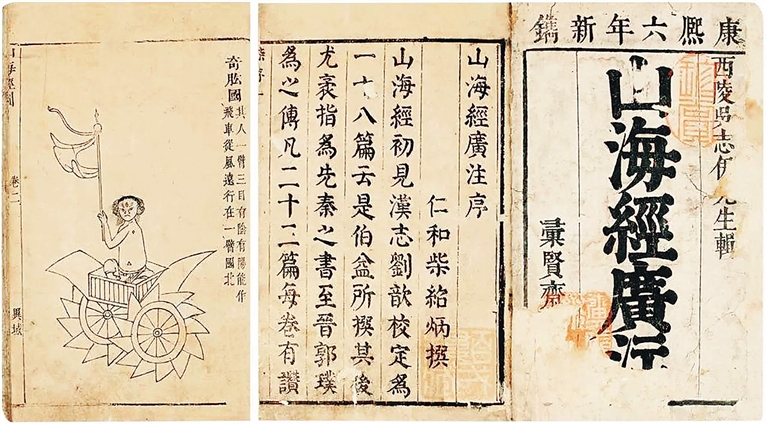 康熙六年新鐫
西陵吳志伊先生輯
山海經廣注
彙賢齋
山海經廣注序
仁和柴紹炳撰
山海經初見漢志劉歆校定為
一十八篇云是伯益所撰其後
尤袤指為先秦之書至晉郭璞
為之傳凡二十二篇每卷有讚
柴序一
奇肱國
其人一臂三目有陰有陽能作
飛車從風遠行在一臂國北
異域
山海經圖
卷二